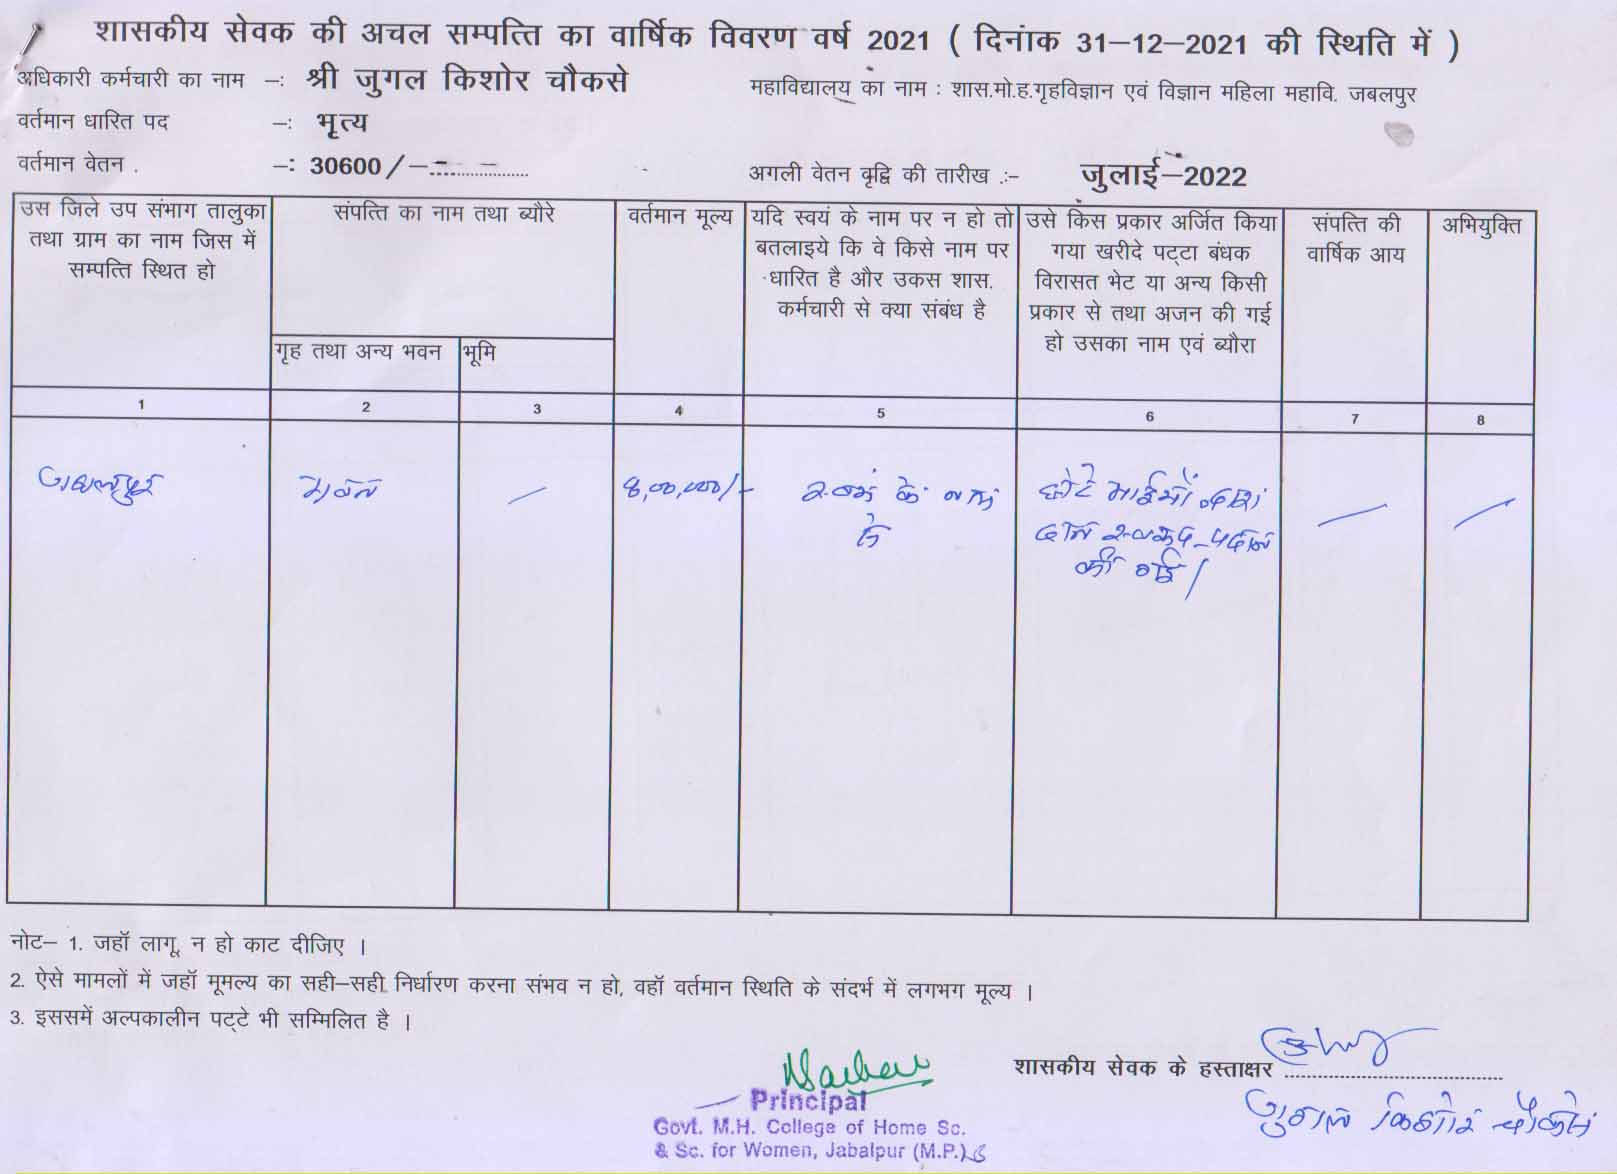 शासकीय सेवक की अचल सम्पत्ति का वार्षिक विवरण वर्ष 2021 ( दिनांक 31–12–2021 की स्थिति में )
अधिकारी कर्मचारी का नाम –: श्री जुगल किशोर चौकसे
महाविद्यालय का नाम : शास.मो.ह.गृहविज्ञान एवं विज्ञान महिला महावि. जबलपुर
वर्तमान धारित पद –: भृत्य
वर्तमान वेतन . –: 30600/–
अगली वेतन वृद्वि की तारीख .:– जुलाई–2022
उस जिले उप संभाग तालुका
तथा ग्राम का नाम जिस में
सम्पत्ति स्थित हो
संपत्ति का नाम तथा ब्यौरे
गृह तथा अन्य भवन
भूमि
वर्तमान मूल्य
यदि स्वयं के नाम पर न हो तो
बतलाइये कि वे किसे नाम पर
धारित है और उकस शास.
कर्मचारी से क्या संबंध है
उसे किस प्रकार अर्जित किया
गया खरीदे पट्टा बंधक
विरासत भेट या अन्य किसी
प्रकार से तथा अजन की गई
हो उसका नाम एवं ब्यौरा
संपत्ति की
वार्षिक आय
अभियुक्ति
1 2 3 4 5 6 7 8
जबलपुर
भवन
—
8,00,000/-
स्वयं के नाम
है
छोटे भाईयों द्वारा
दान स्वरूप प्रदान
की गई।
—
—
नोट– 1. जहॉ लागू, न हो काट दीजिए ।
2. ऐसे मामलों में जहॉ मूमल्य का सही–सही निर्धारण करना संभव न हो, वहॉ वर्तमान स्थिति के संदर्भ में लगभग मूल्य ।
3. इससमें अल्पकालीन पट्टे भी सम्मिलित है ।
शासकीय सेवक के हस्ताक्षर
जुगल किशोर चौकसे
Principal
Govt. M.H. College of Home Sc.
& Sc. for Women, Jabalpur (M.P.)